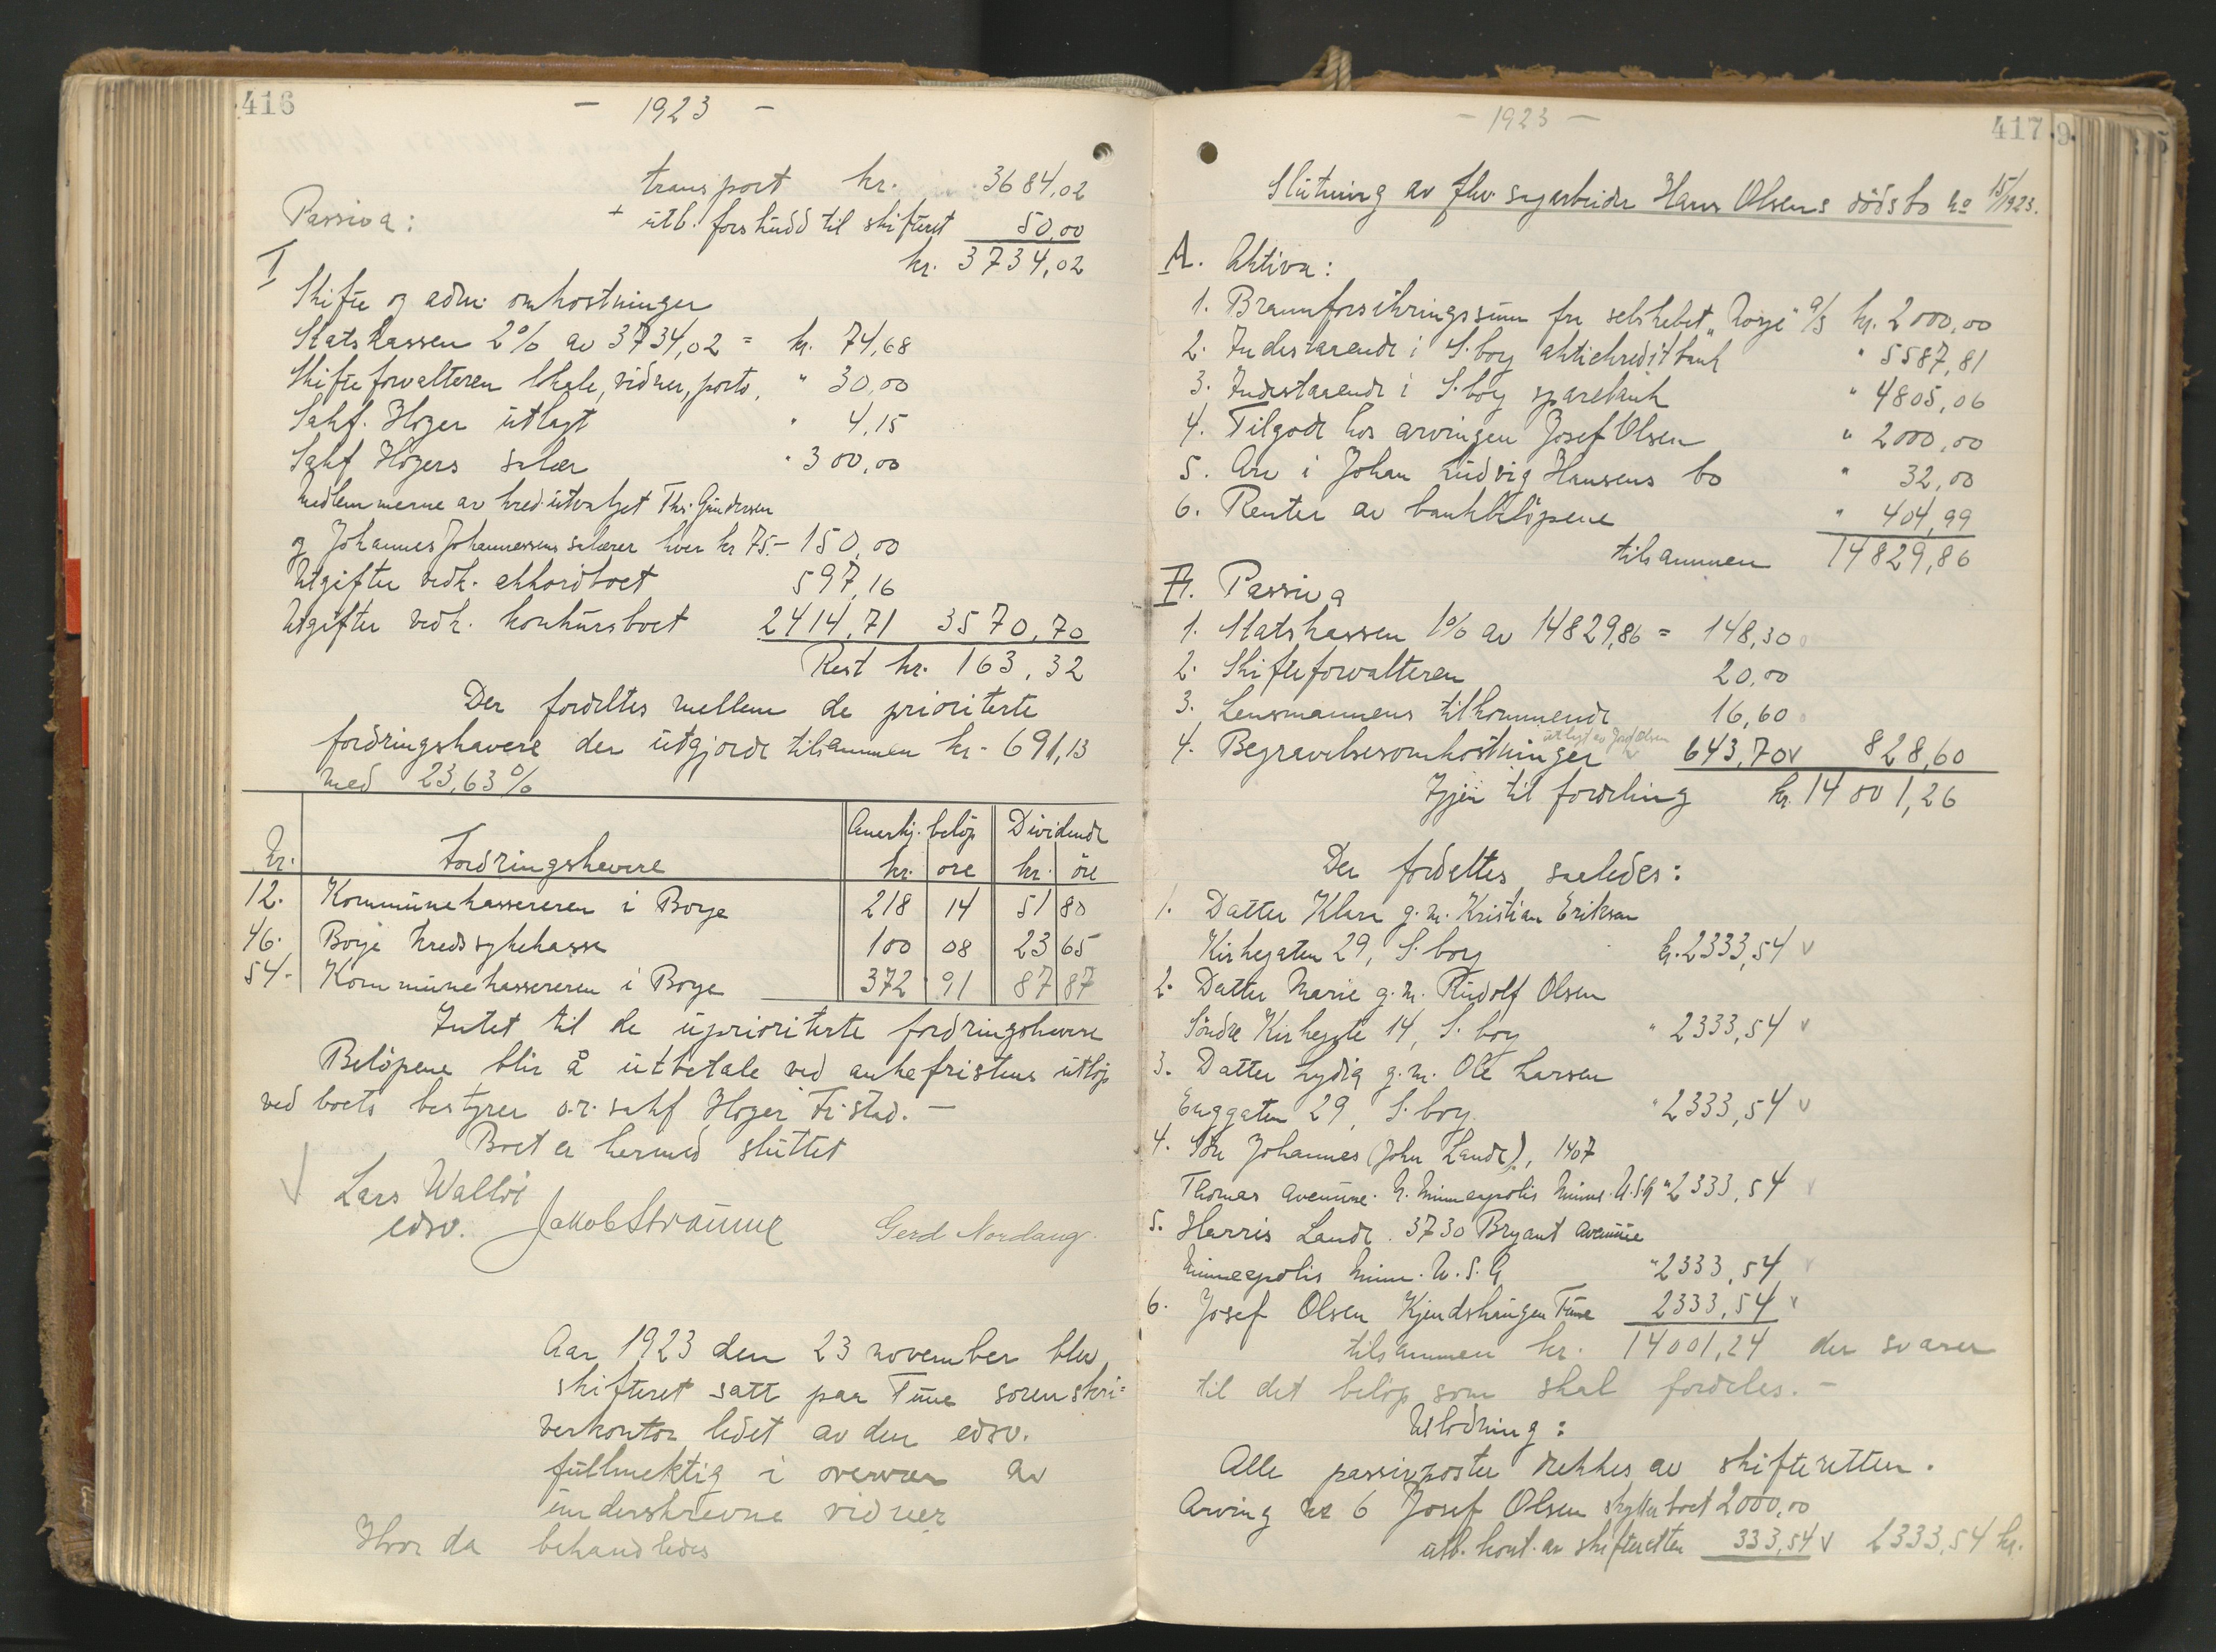 416
- 1923 -
transport kr. 3684,02
Passiva:
+ utb. forskudd til skifteret 50,00
kr. 3734,02
I
Skifte og adm. omkostninger
Statskassen 2% av 3734,02 = kr. 74,68
Skifteforvalteren lokale, vidner, porto, " 30,00
Sakf. Høyer utlagt " 4,15
Sakf Høyers salær " 300,00
Medlemmerne av kred.utvalget Thr. Gundersen
og Johannes Johannessens salærer hver kr 75.- 150,00
Utgifter vedk. akkordboet 597,16
Utgifter vedk. konkursboet 2414,71 3570,70
Rest kr. 163,32
Der fordeltes mellem de prioriterte
fordringshavere der utgjorde tilsammen kr. 691,13
med 23,63%
Nr. Fordringshavere Anerkj. beløp Dividende
kr. øre kr. øre
12. Kommunekassereren i Borge 218 14 51 80
46. Borge kredssykekasse 100 08 23 65
54. Kommunekassereren i Borge 372 91 87 87
Intet til de uprioriterte fordringshavere
Beløpene blir å utbetale ved ankefristens utløp
ved boets bestyrer o.r. sakf Høyer Fr.stad. -
Boet er hermed sluttet
Lars Walløe
edsv. Jakob Straume Gerd Nordang.
Aar 1923 den 23 november blev
skifteret satt paa Tune sorenskri=
verkontor ledet av den edsv.
fullmektig i overvær av
underskrevne vidner
Hvor da behandledes
- 1923 -
417
Slutning av fhv. sagarbeider Hans Olsens dødsbo no 15/1923.
A. Aktiva:
1. Brannforsikringssum fra selskabet "Norge" a/s kr. 2000,00
2. Indestaaende i S.borg aktiekreditbank " 5587,81
3. Indestaaende i S.borg sparebank " 4805,06
4. Tilgode hos arvingen Josef Olsen " 2000,00
5. Arv i Johan Ludvig Hansens bo " 32,00
6. Renter av bankbeløpene " 404,99
tilsammen 14829,86
Passiva
1. Statskassen 1% av 14829,86 = 148,30
2. Skifteforvalteren 20,00
3. Lensmannens tilkommende 16,60
utlagt av Josef Olsen
4. Begravelsesomkostninger 643,70 v 828,60
Igjen til fordeling kr. 14001,26
Der fordeltes saaledes:
1. Datter Klara g.m. Kristian Eriksen
Kirkegaten 29, S.borg kr. 2333,54 v
2. Datter Marie g.m. Rudolf Olsen
Søndre Kirkegte 14, S.borg " 2333,54 v
3. Datter Lydia g.m. Ole Larsen
Enggaten 29, S.borg " 2333,54 v
4. Søn Johannes (John Lande), 1407
Thomas avenue. N. Minneapolis Minn. U.S.A " 2333,54 v
5. Harris Lande. 3730 Bryant avenue
Minneapolis Minn. U.S.A " 2333,54 v
6. Josef Olsen Kjendshaugen Tune 2333,54 v
tilsammen kr. 14001,24 der svarer
til det beløp som skal fordeles. -
Utlodning:
Alle passivposter dekkes av skifteretten.
Arving no 6 Josef Olsen skylder boet 2000,00
utb. kont. av skifteretten 333,54 v 2333,54 kr.